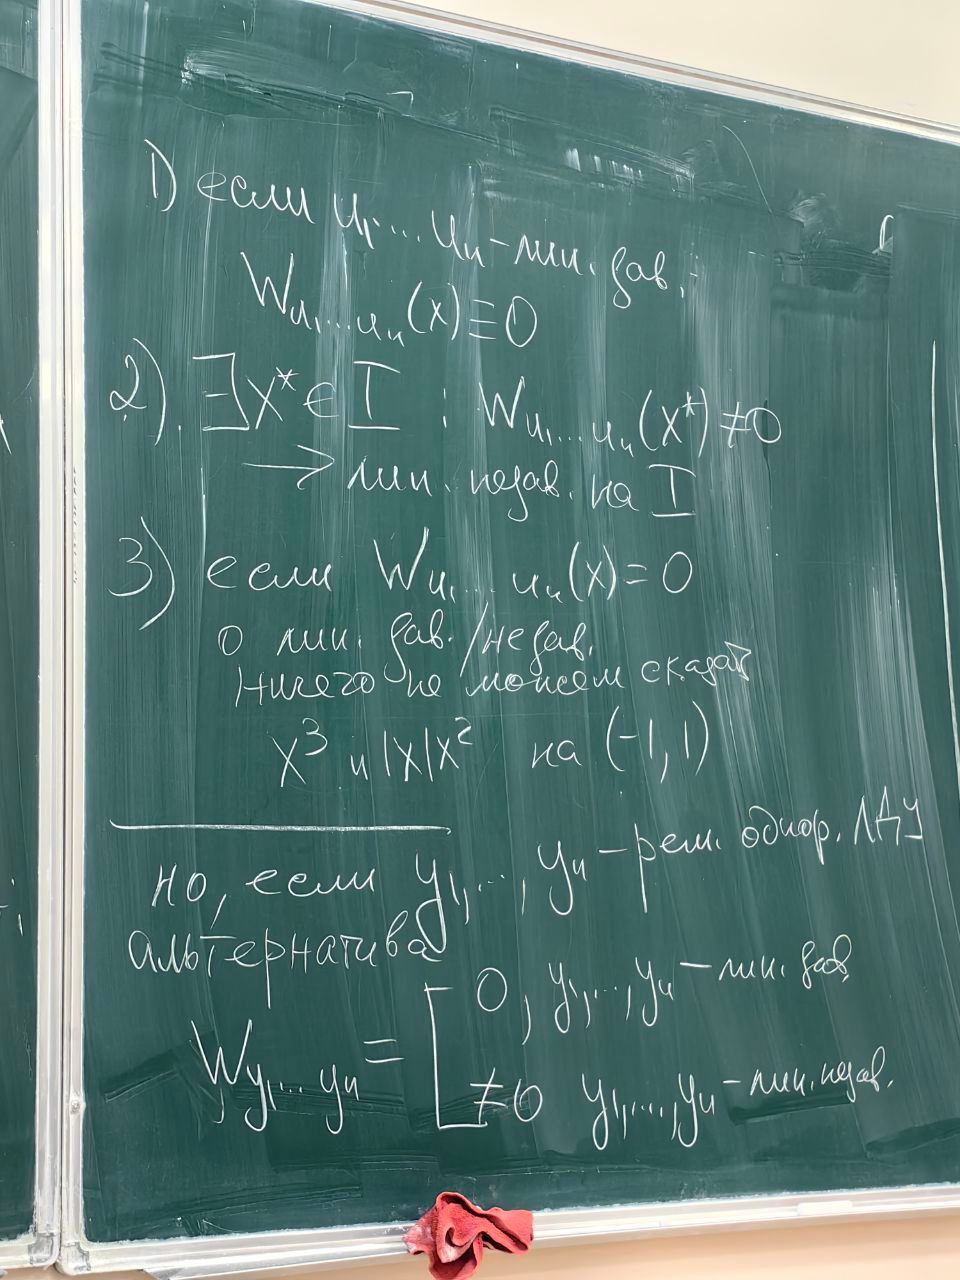 1) если u₁,...,uₙ – лин. зав.
W u₁...uₙ (x) ≡ 0
2). ∃ x* ∈ I : W u₁...uₙ (x*) ≠ 0
→ лин. незав. на I
3) если W u₁...uₙ (x) = 0
о лин. зав. / незав.
ничего не можем сказать
x³ и |x|x² на (-1, 1)
но, если y₁,..., yₙ – реш. однор. ЛДУ
альтернатива
W y₁...yₙ = [ 0, y₁,..., yₙ – лин. зав.
≠ 0 y₁,..., yₙ – лин. незав.